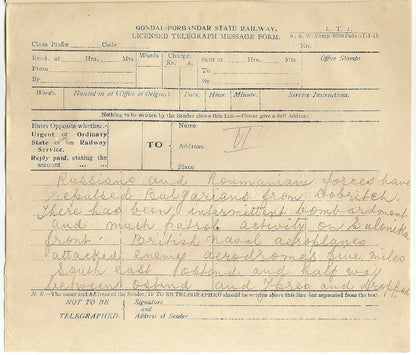 GONDAL-PORBANDAR STATE RAILWAY.
LICENSED TELEGRAPH MESSAGE FORM.
L. T. 1.
Class Prefix Code No.
Recd. at Hrs. Mts.
From
By
Words
Charge.
Rs. A.
Sent at Hrs. Mts.
To
By
Office Stamps.
Words. Handed in at (Office of Origin.) Date. Hour. Minute. Service Instructions.
Nothing to be written by the Sender above this Line—Please give a full Address.
Enter Opposite whether.
Urgent or Ordinary
State or on Railway
Service.
Reply paid, stating the
amount
TO
Name
Address.
VI
Russians and Roumanian forces have
repulsed Bulgarians from Dobritch.
There has been intermittent bombardment
and much patrol activity on Salonika
front. British naval aeroplanes
attacked enemy aerodromes five miles
South east Ostend and half way
between Ostend and Ypres and dropped
N. B.—The name and Address of the Sender, IF TO BE TELEGRAPHED should be written above this line but separated from the text.
NOT TO BE
TELEGRAPHED.
Signature
and
Address of Sender